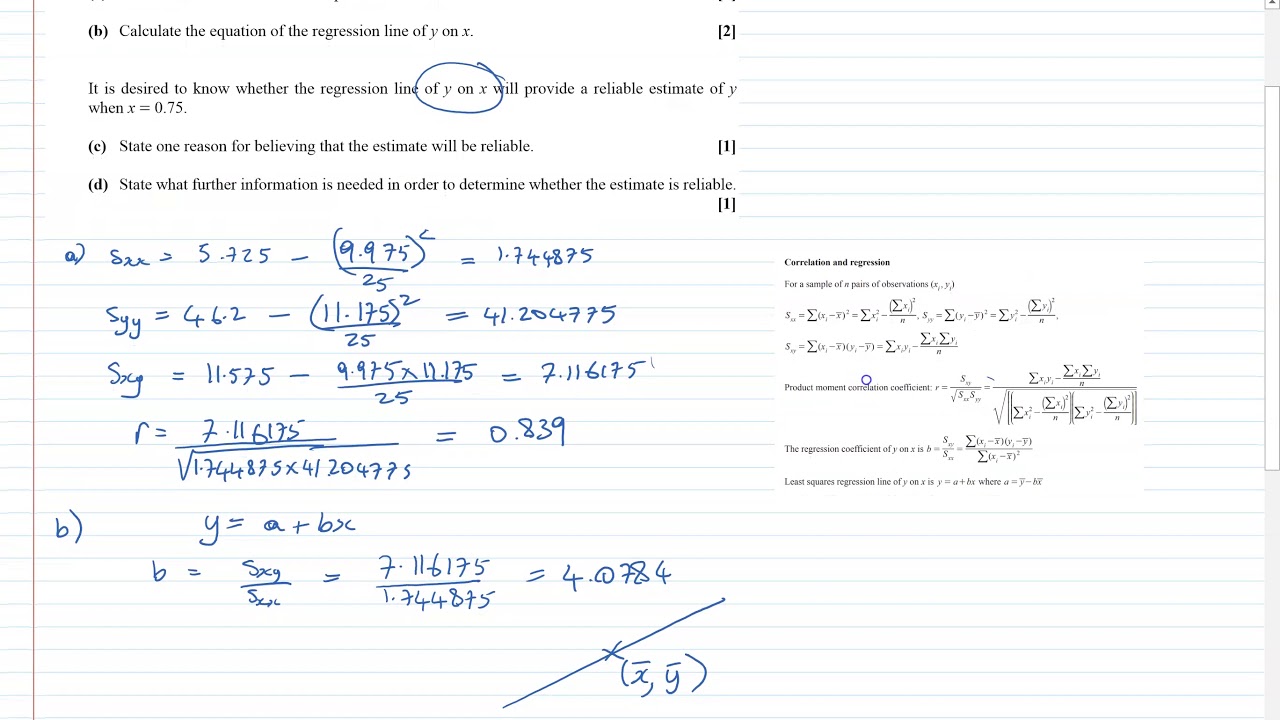 (b) Calculate the equation of the regression line of y on x. [2]
It is desired to know whether the regression line of y on x will provide a reliable estimate of y
when x = 0.75.
(c) State one reason for believing that the estimate will be reliable. [1]
(d) State what further information is needed in order to determine whether the estimate is reliable.
[1]
a) Sxx = 5.725 − (9.975)²/25 = 1.744875
Syy = 46.2 − (11.175)²/25 = 41.204775
Sxy = 11.575 − 9.975×11.175/25 = 7.116175
r = 7.116175/√1.744875×41.204775 = 0.839
b) y = a + bx
b = Sxy/Sxx = 7.116175/1.744875 = 4.0784
(x̄, ȳ)
Correlation and regression
For a sample of n pairs of observations (xᵢ, yᵢ)
Sxx = ∑(xᵢ−x̄)² = ∑xᵢ² − (∑xᵢ)²/n , Syy = ∑(yᵢ−ȳ)² = ∑yᵢ² − (∑yᵢ)²/n ,
Sxy = ∑(xᵢ−x̄)(yᵢ−ȳ) = ∑xᵢyᵢ − ∑xᵢ∑yᵢ/n
Product moment correlation coefficient: r = Sxy/√SxxSyy = (∑xᵢyᵢ − ∑xᵢ∑yᵢ/n)/√[(∑xᵢ² − (∑xᵢ)²/n)(∑yᵢ² − (∑yᵢ)²/n)]
The regression coefficient of y on x is b = Sxy/Sxx = ∑(xᵢ−x̄)(yᵢ−ȳ)/∑(xᵢ−x̄)²
Least squares regression line of y on x is y = a + bx where a = ȳ − bx̄